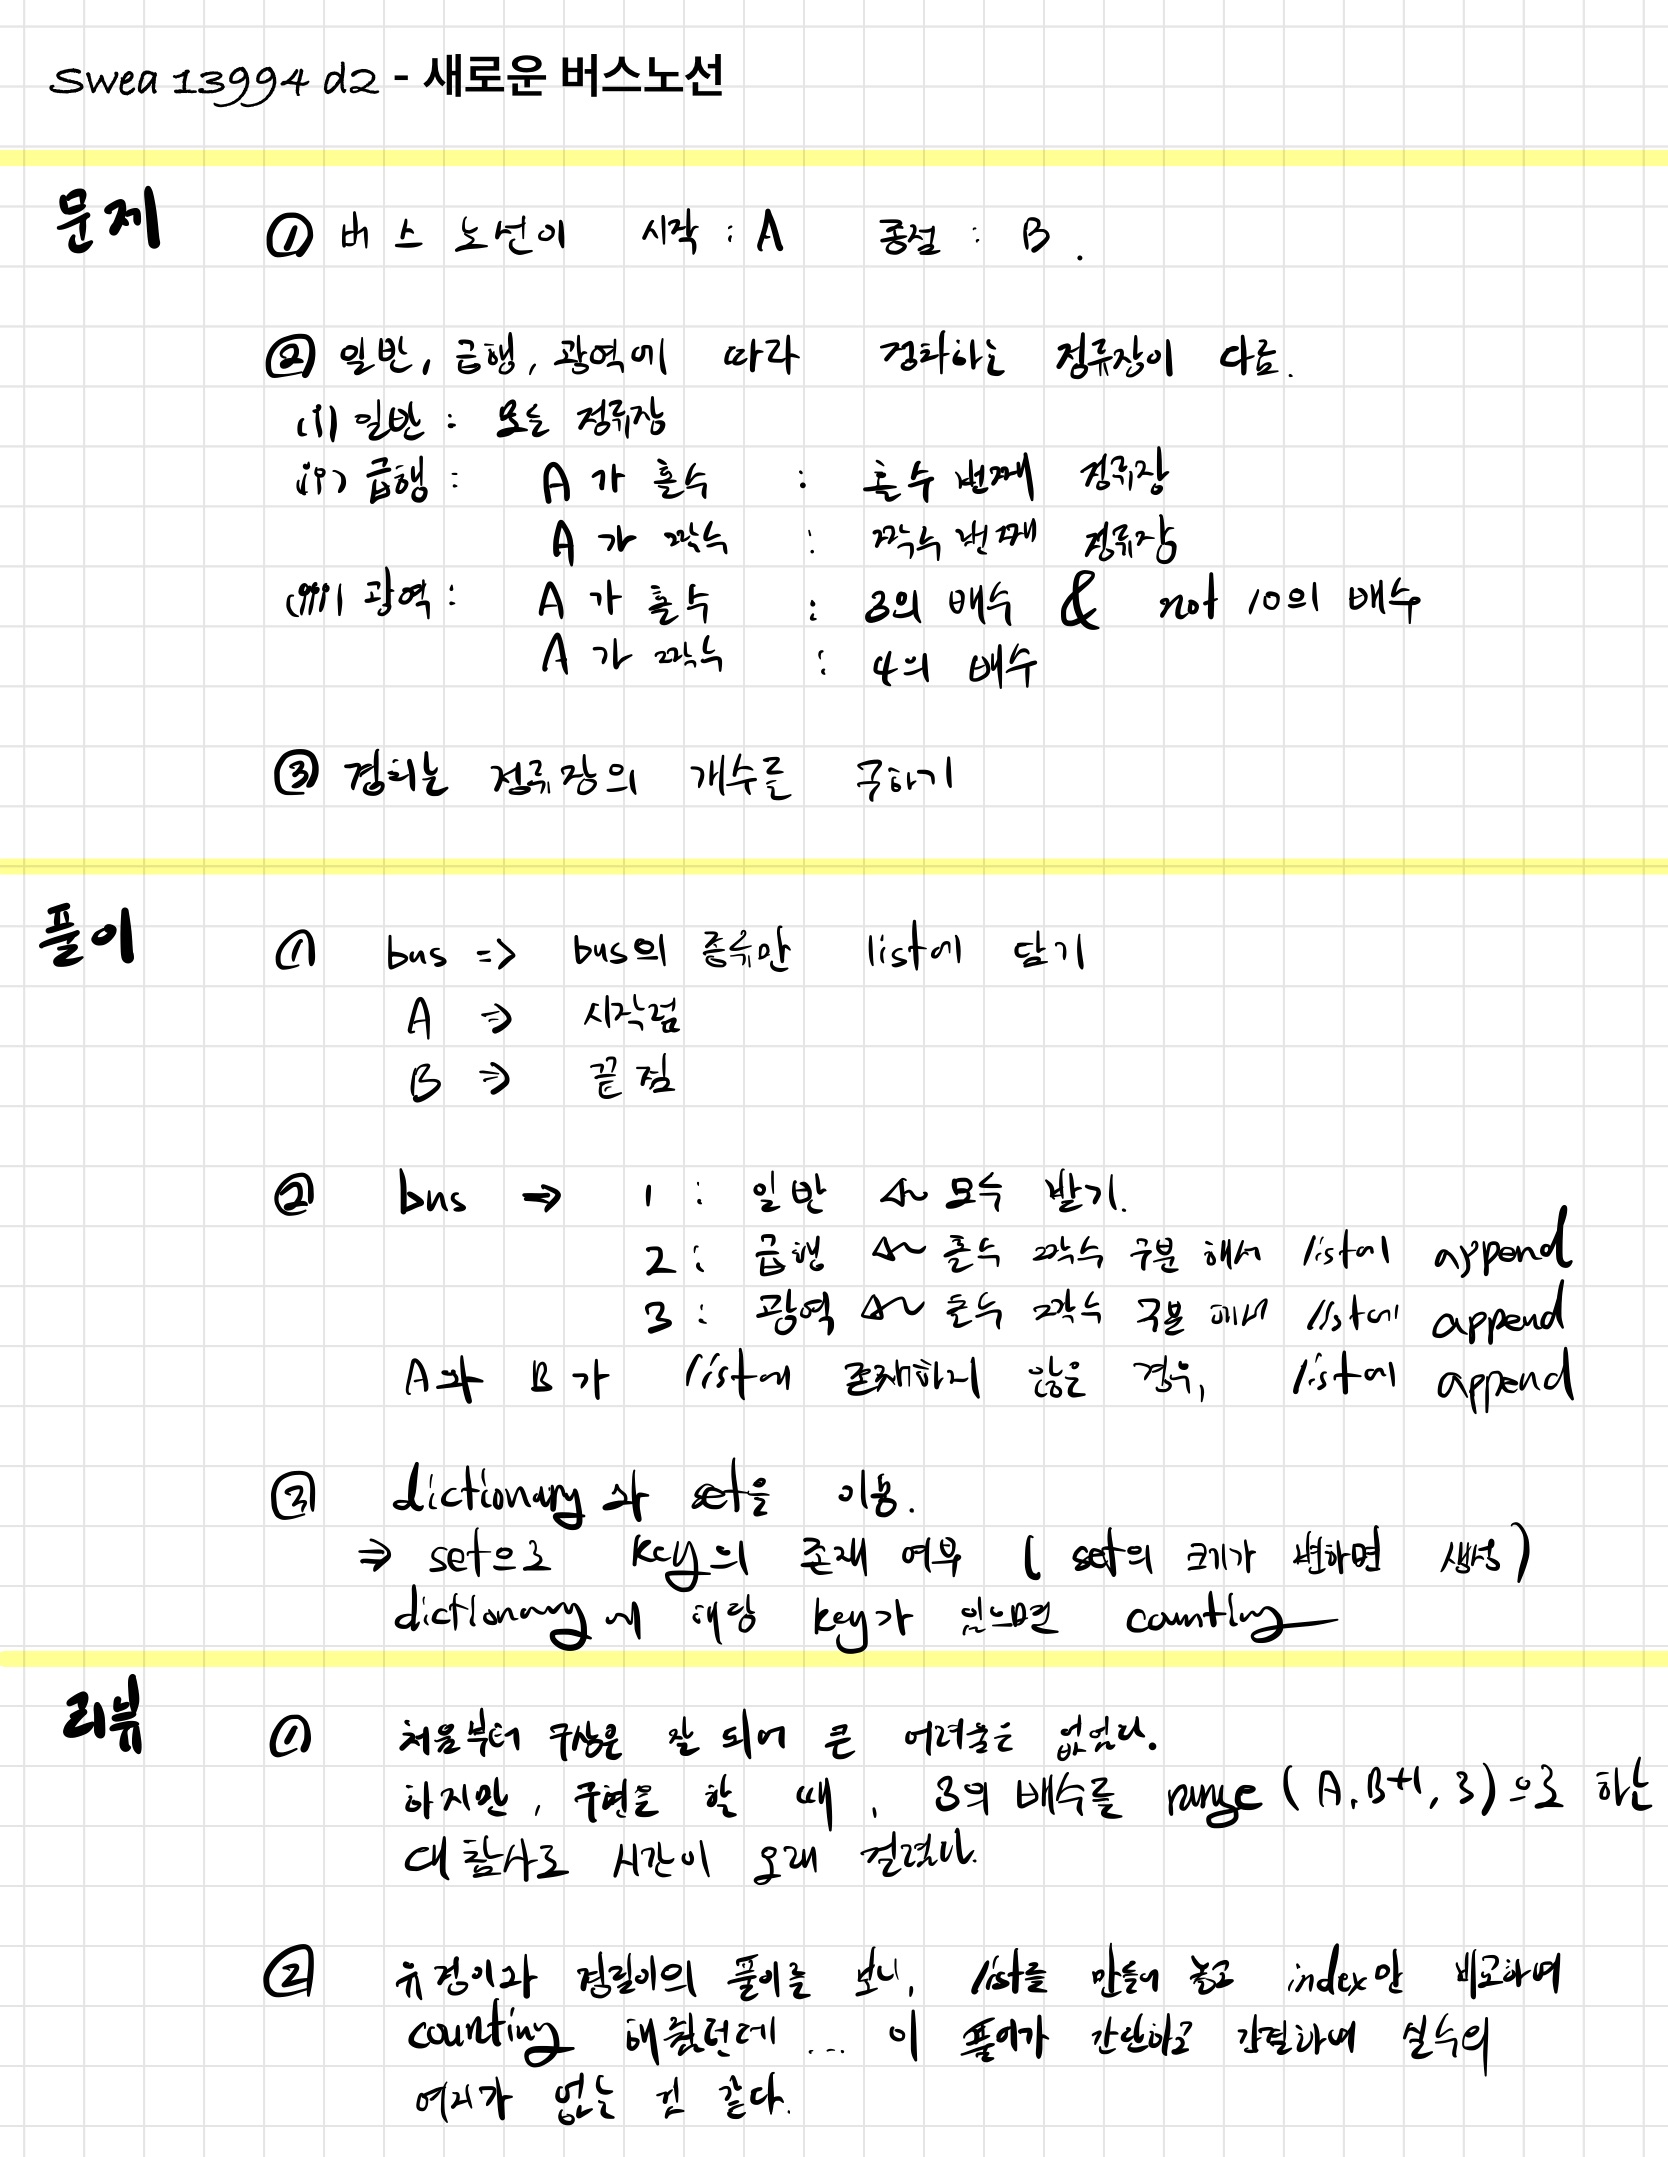 Swea 13994 d2 - 새로운 버스노선
문제
① 버스 노선이 시작 : A 종점 : B.
② 일반, 급행, 광역에 따라 정차하는 정류장이 다름.
(i) 일반 : 모든 정류장
(ii) 급행 : A가 홀수 : 홀수 번째 정류장
A가 짝수 : 짝수 번째 정류장
(iii) 광역 : A가 홀수 : 3의 배수 & not 10의 배수
A가 짝수 : 4의 배수
③ 정류장의 개수를 구하기
풀이
① bus => bus의 종류만 list에 담기
A => 시작점
B => 끝점
② bus → 1 : 일반 모두 받기.
2 : 급행 홀수 짝수 구분 해서 list에 append
3 : 광역 홀수 짝수 구분 해서 list에 append
A와 B가 list에 존재하지 않은 경우, list에 append
③ dictionary와 set을 이용.
⇒ set으로 key의 존재 여부 ( set의 크기가 변하면 생성 )
dictionary에 해당 key가 있으면 counting
리뷰
① 처음부터 구상은 잘 되어 큰 어려움은 없었다.
하지만, 구현을 할 때, 3의 배수를 range ( A, B+1, 3 ) 으로 하는
대참사로 시간이 오래 걸렸다.
② 유정이와 경림이의 풀이를 보니, list를 만들어 놓고 index만 비교하며
counting 해줬던데 .... 이 풀이가 간단하고 간결하여 실수의
여지가 없는 것 같다.